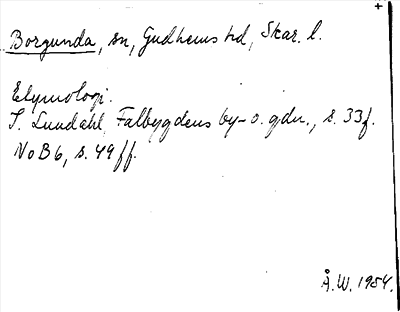 Borgunda, sn, Gudhems hd, Skar. l.
Etymologi.
I. Lundahl, Falbygdens by- o. gdn., s. 33f.
NoB6, s. 49 ff.
Å.W. 1954.